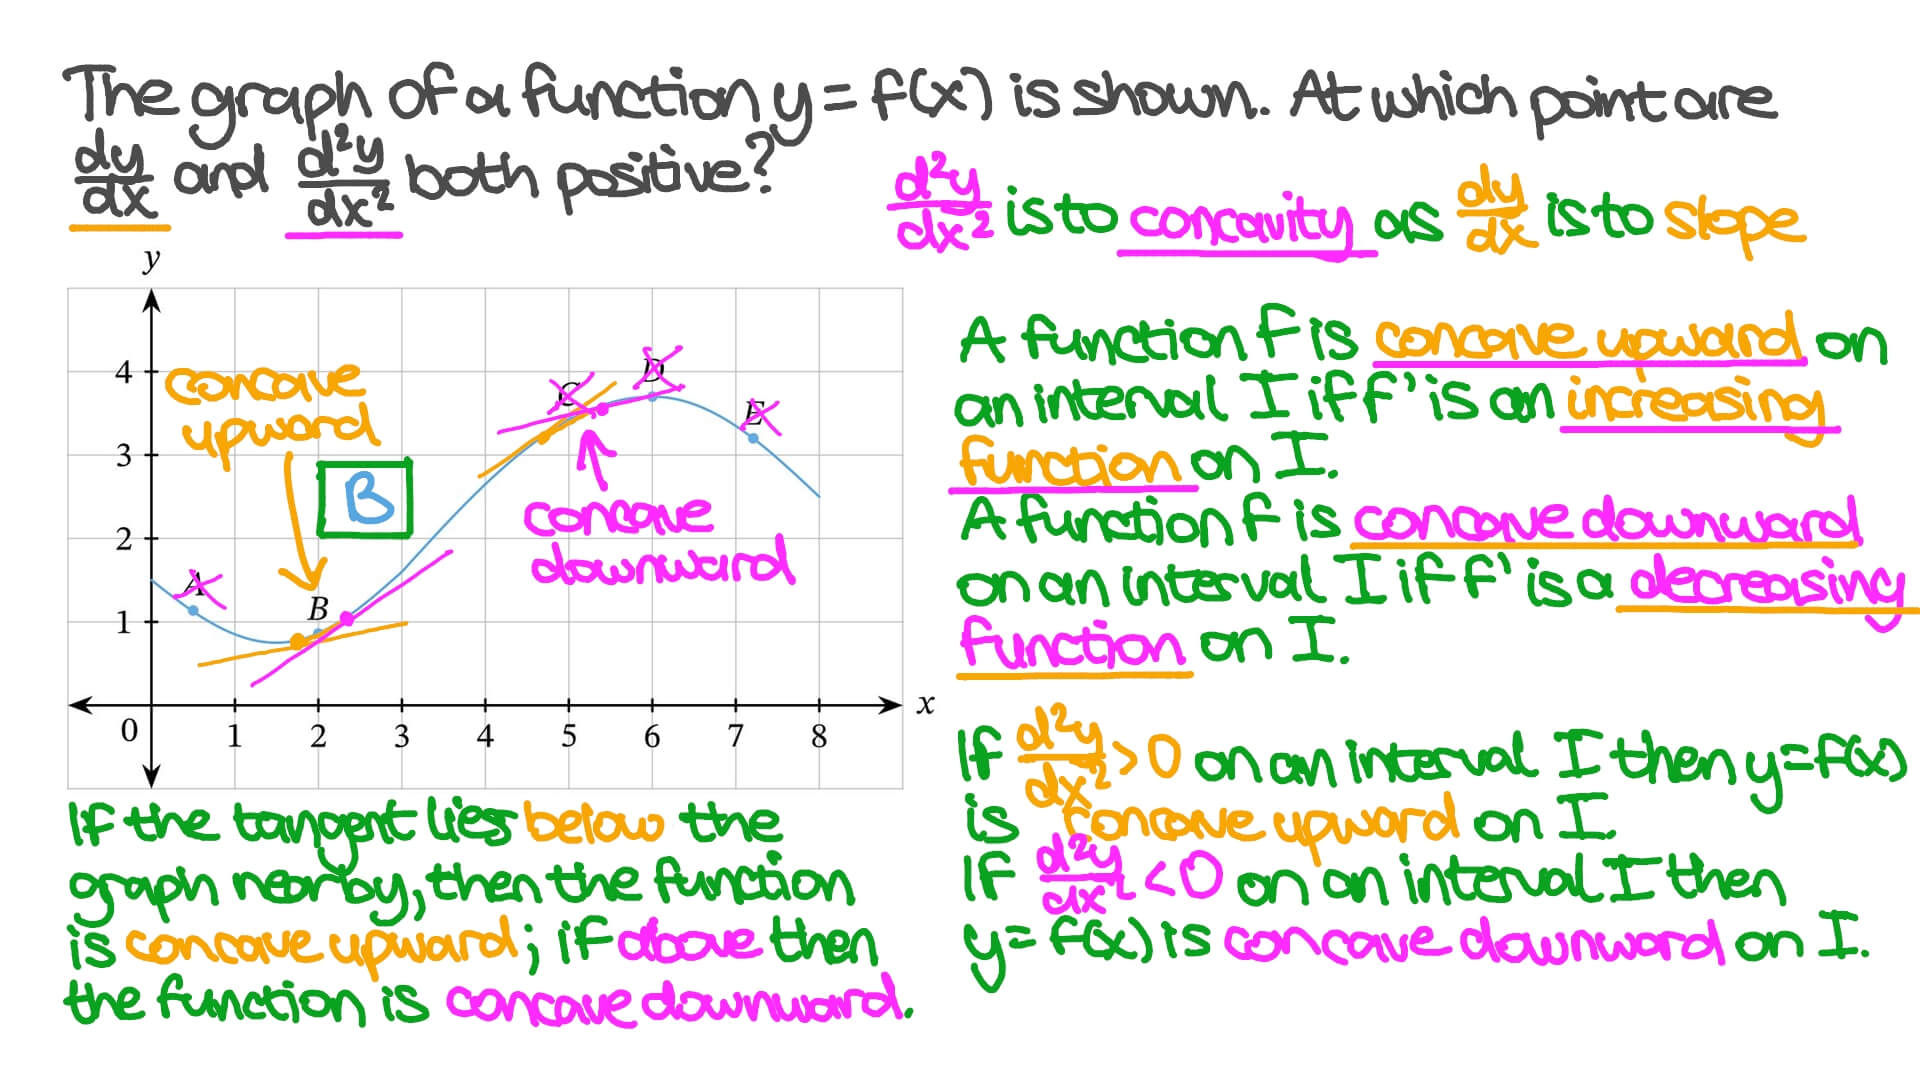 The graph of a function y = f(x) is shown. At which point are
dy/dx and d²y/dx² both positive?
d²y/dx² is to concavity as dy/dx is to slope
y
4
3
2
1
0
1
2
3
4
5
6
7
8
x
A
B
C
D
E
concave
upward
B
concave
downward
A function f is concave upward on
an interval I if f' is an increasing
function on I.
A function f is concave downward
on an interval I if f' is a decreasing
function on I.
If d²y/dx² > 0 on an interval I then y = f(x)
is concave upward on I.
If d²y/dx² < 0 on an interval I then
y = f(x) is concave downward on I.
If the tangent lies below the
graph nearby, then the function
is concave upward; if above then
the function is concave downward.